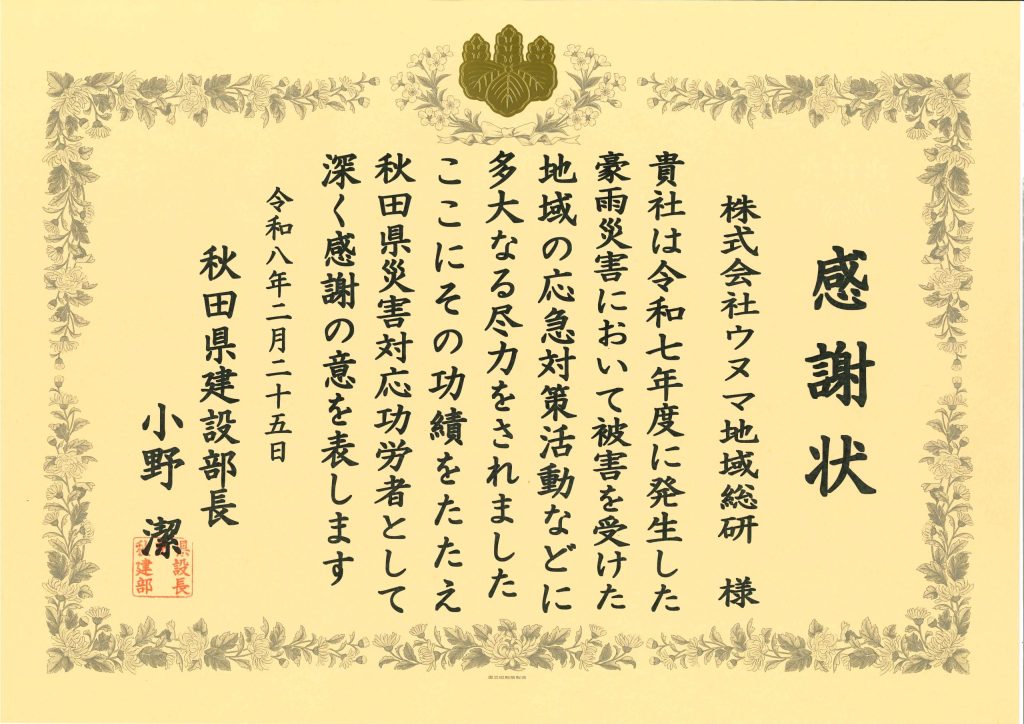 感謝状
株式会社ウヌマ地域総研 様
貴社は令和七年度に発生した
豪雨災害において被害を受けた
地域の応急対策活動などに
多大なる尽力をされました
ここにその功績をたたえ
秋田県災害対応功労者として
深く感謝の意を表します
令和八年二月二十五日
秋田県建設部長
小野 潔